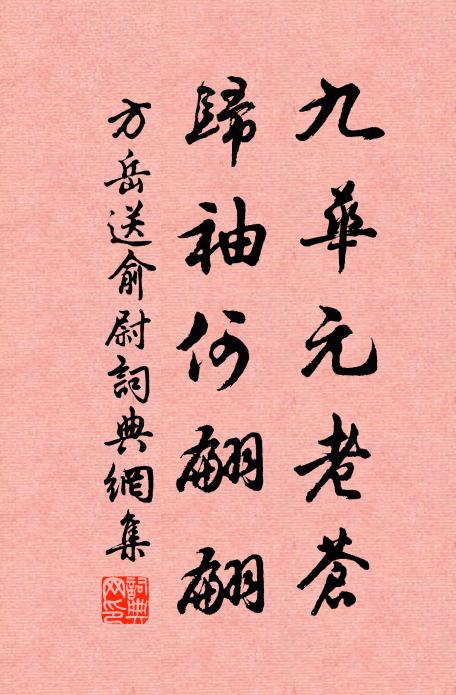 九華元老蒼
歸袖何翩翩
方岳送俞尉詞典網集
詞典網印